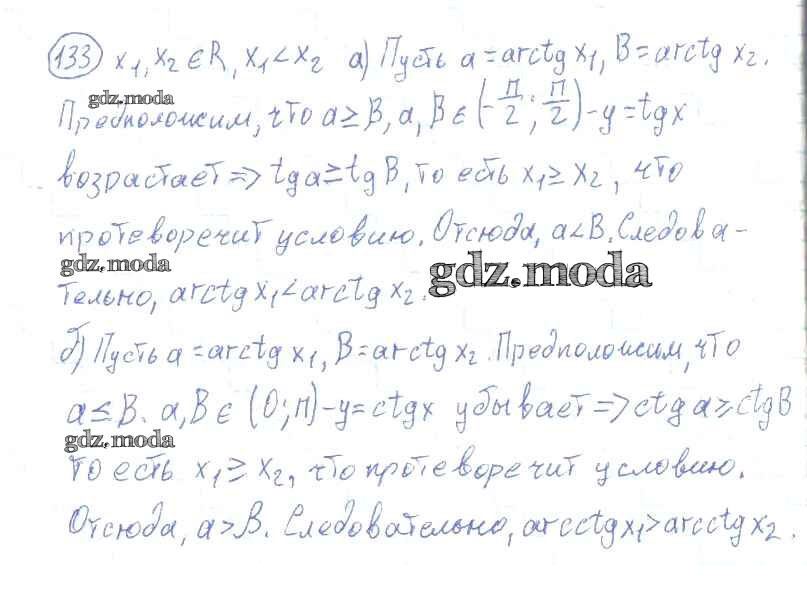 133 x₁, x₂ ∈ R, x₁ < x₂ а) Пусть a = arctg x₁, B = arctg x₂.
gdz.moda
Предположим, что a ≥ B, a, B ∈ (-π/2; π/2) - y = tgx
возрастает => tga ≥ tgB, то есть x₁ ≥ x₂, что
противоречит условию. Отсюда, a < B. Следова-
gdz.moda
gdz.moda
тельно, arctg x₁ < arctg x₂.
б) Пусть a = arctg x₁, B = arctg x₂. Предположим, что
a ≤ B. a, B ∈ (0; π) - y = ctgx убывает => ctga ≥ ctgB
gdz.moda
то есть x₁ ≥ x₂, что противоречит условию.
Отсюда, a > B. Следовательно, arcctg x₁ > arcctg x₂.